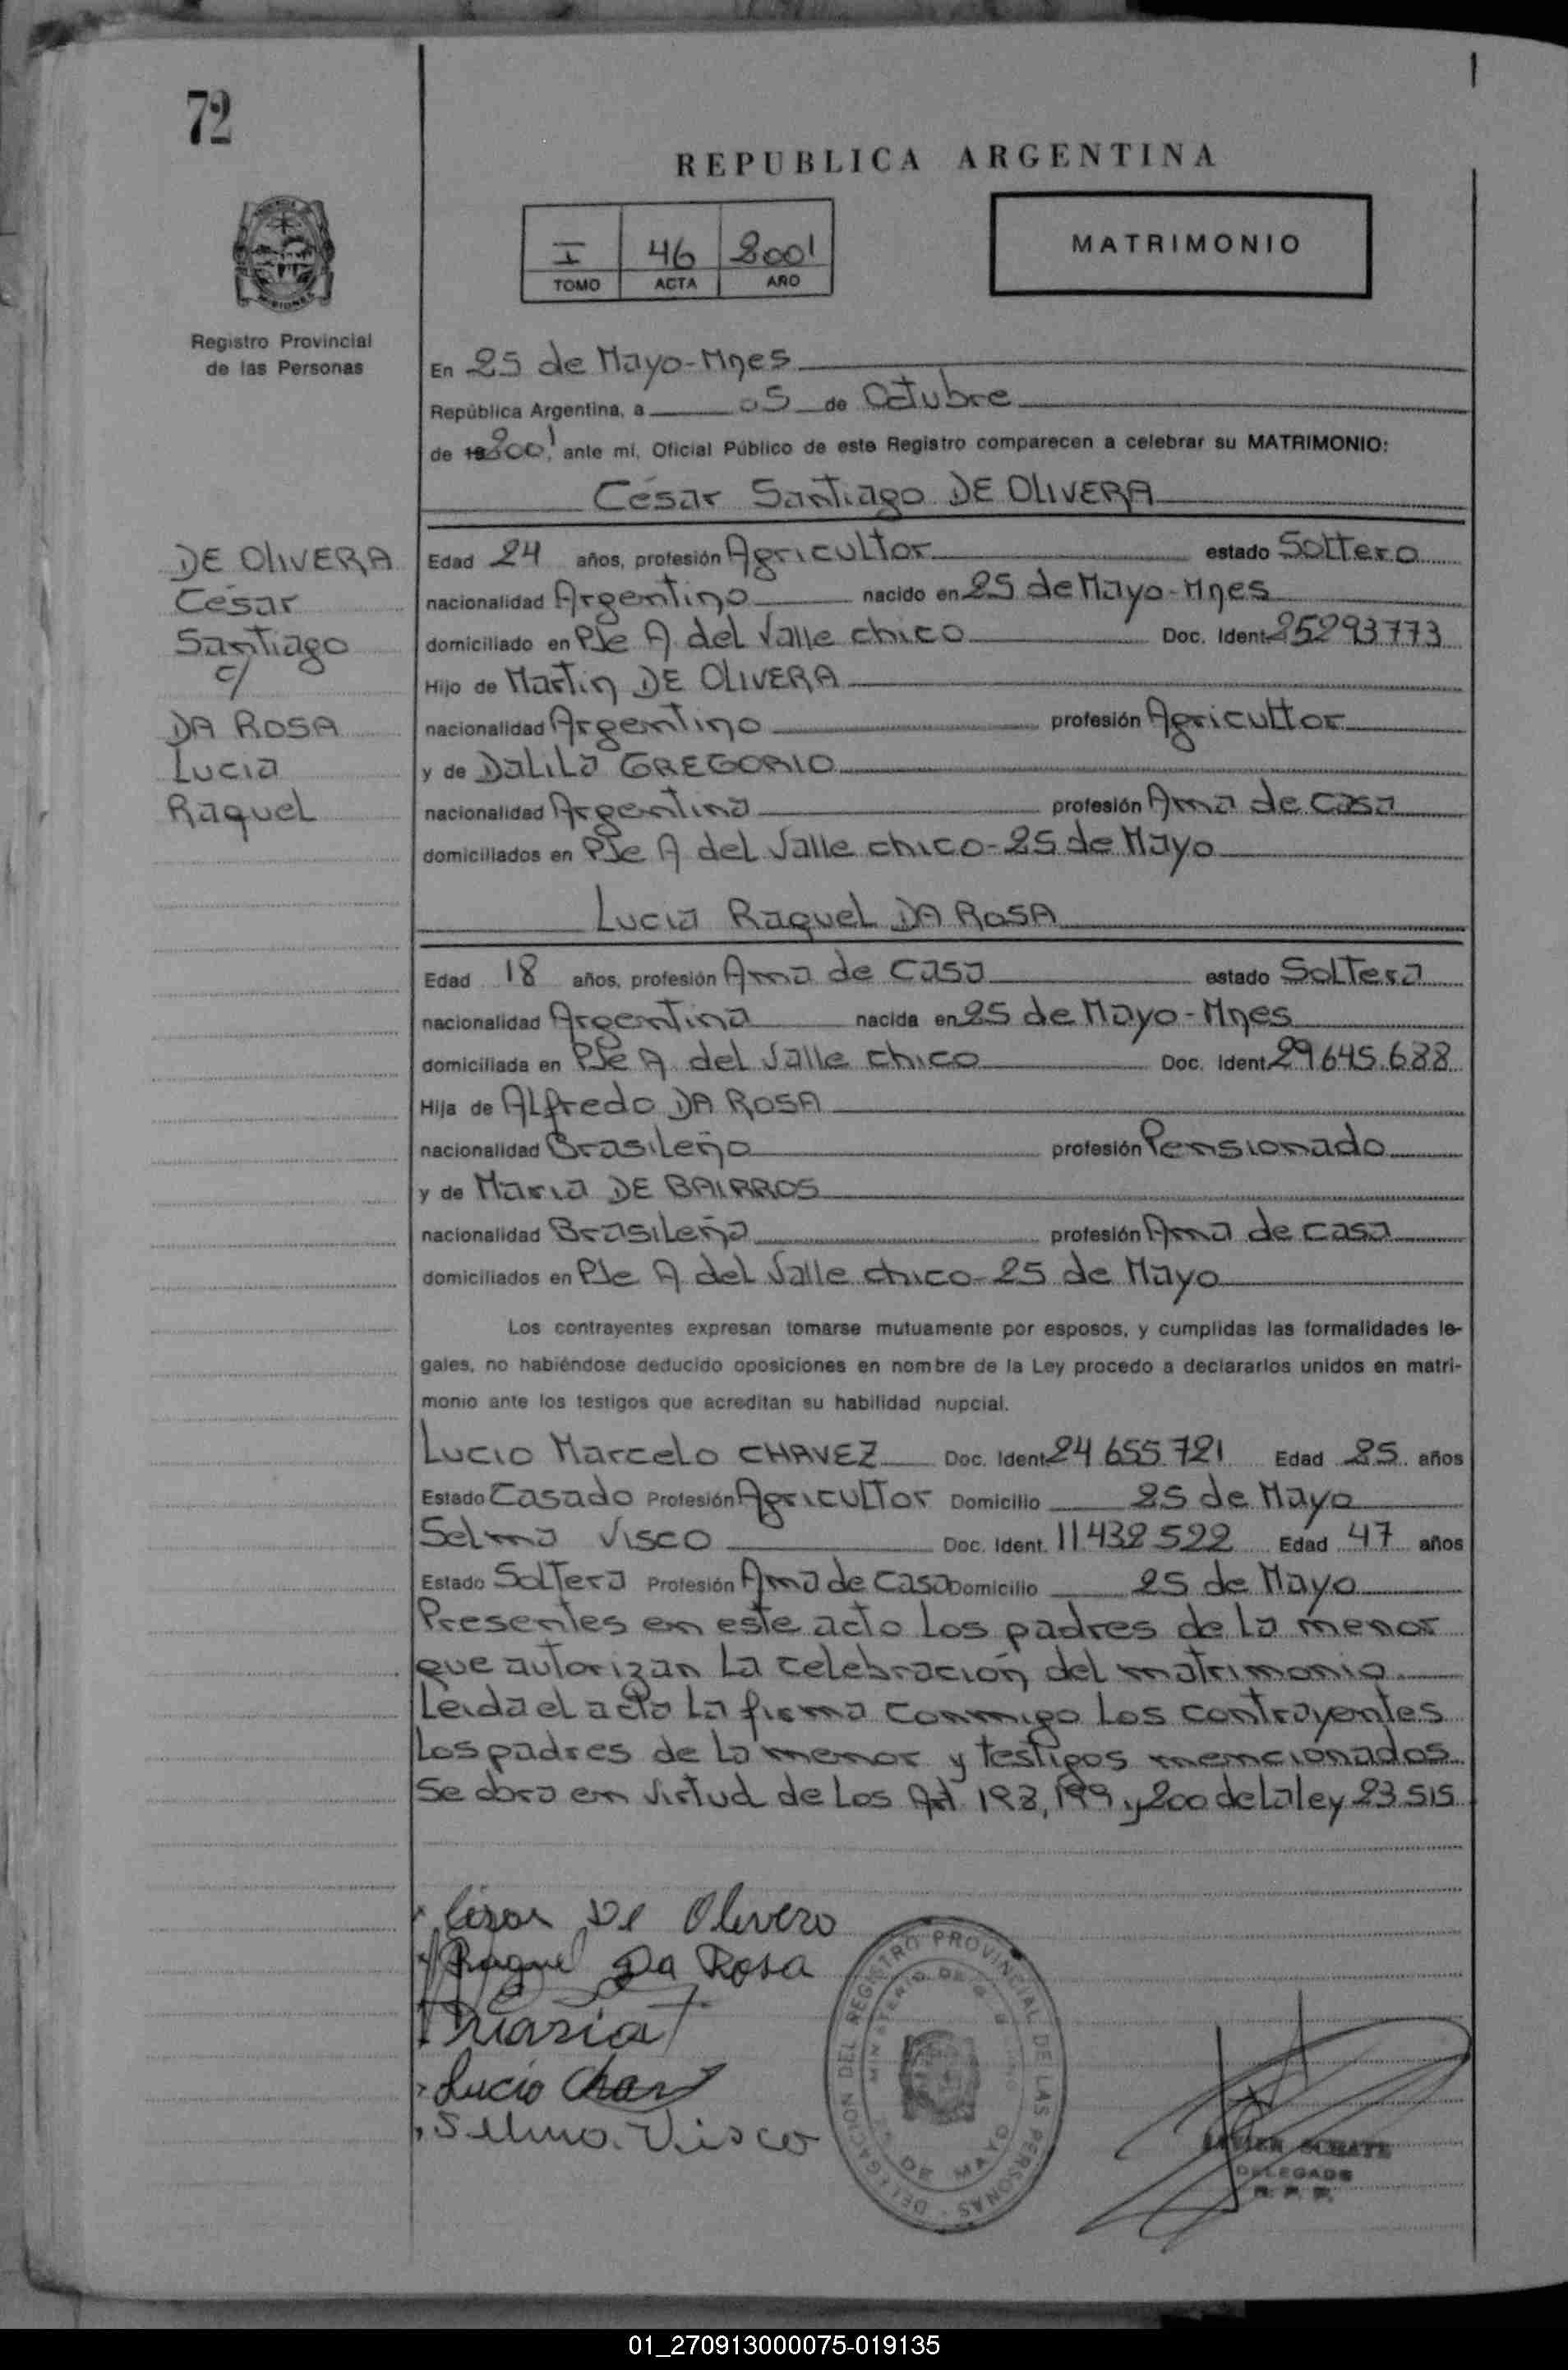 72
REPUBLICA ARGENTINA
I 46 2001
TOMO ACTA AÑO
MATRIMONIO
Registro Provincial
de las Personas
En 25 de Mayo-Mnes
República Argentina, a 05 de Octubre
de 19 2001, ante mí, Oficial Público de este Registro comparecen a celebrar su MATRIMONIO:
César Santiago DE OLIVERA
DE OLIVERA
César
Santiago
c/
DA ROSA
Lucia
Raquel
Edad 24 años, profesión Agricultor estado Soltero
nacionalidad Argentino nacido en 25 de Mayo-Mnes
domiciliado en Pje A. del Valle chico Doc. Ident. 25293773
Hijo de Martin DE OLIVERA
nacionalidad Argentino profesión Agricultor
y de Dalila GREGORIO
nacionalidad Argentina profesión Ama de casa
domiciliados en Pje A del Valle chico-25 de Mayo
Lucia Raquel DA ROSA
Edad 18 años, profesión Ama de casa estado Soltera
nacionalidad Argentina nacida en 25 de Mayo-Mnes
domiciliada en Pje A. del Valle chico Doc. Ident. 29645.688
Hija de Alfredo DA ROSA
nacionalidad Brasileño profesión Pensionado
y de Maria DE BAIRROS
nacionalidad Brasileña profesión Ama de casa
domiciliados en Pje A del Valle chico-25 de Mayo
Los contrayentes expresan tomarse mutuamente por esposos, y cumplidas las formalidades le-
gales, no habiéndose deducido oposiciones en nombre de la Ley procedo a declararlos unidos en matri-
monio ante los testigos que acreditan su habilidad nupcial.
Lucio Marcelo CHAVEZ Doc. Ident. 24 655.721 Edad 25 años
Estado Casado Profesión Agricultor Domicilio 25 de Mayo
Selma Visco Doc. Ident. 11.432.522 Edad 47 años
Estado Soltera Profesión Ama de casa Domicilio 25 de Mayo
Presentes en este acto los padres de la menor
que autorizan la celebración del matrimonio.
Leida el acta la firma conmigo los contrayentes
los padres de la menor y testigos mencionados
Se obra en virtud de los Art. 198, 199 y 200 de la ley 23.515
Cesar De Olivera
Raquel Da Rosa
Maria
Lucio Chavez
Selma Visco
DELEGACION DEL REGISTRO PROVINCIAL DE LAS PERSONAS
MINISTERIO DE GOBIERNO
25 DE MAYO
DELEGADO
R. P. P.
01_270913000075-019135